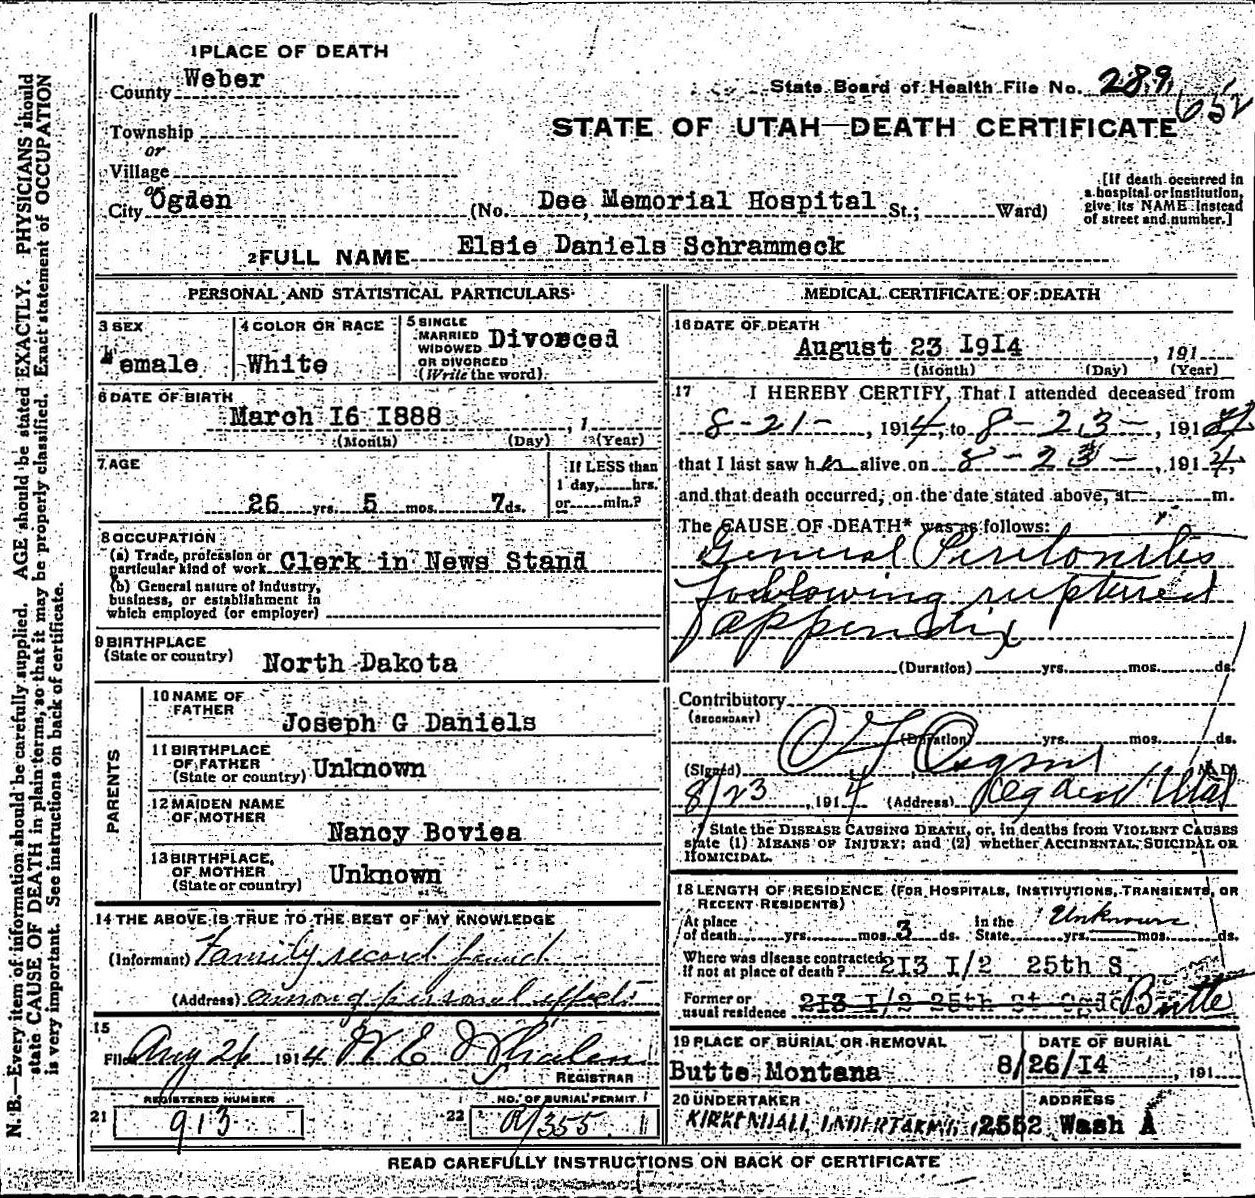 1 PLACE OF DEATH
County Weber
State Board of Health File No. 289
652
Township
or
STATE OF UTAH—DEATH CERTIFICATE
Village
or
City Ogden (No. Dee Memorial Hospital St.; Ward)
[If death occurred in
a hospital or institution,
give its NAME instead
of street and number.]
2 FULL NAME Elsie Daniels Schrammeck
PERSONAL AND STATISTICAL PARTICULARS
3 SEX
Female
4 COLOR OR RACE
White
5 SINGLE
MARRIED
WIDOWED
OR DIVORCED
(Write the word)
Divorced
6 DATE OF BIRTH
March 16 1888, 1
(Month) (Day) (Year)
7 AGE
26 yrs. 5 mos. 7 ds.
If LESS than
1 day, hrs.
or min.?
8 OCCUPATION
(a) Trade, profession or
particular kind of work Clerk in News Stand
(b) General nature of industry,
business, or establishment in
which employed (or employer)
9 BIRTHPLACE
(State or country) North Dakota
PARENTS
10 NAME OF
FATHER
Joseph G Daniels
11 BIRTHPLACE
OF FATHER
(State or country) Unknown
12 MAIDEN NAME
OF MOTHER
Nancy Boviea
13 BIRTHPLACE
OF MOTHER
(State or country) Unknown
14 THE ABOVE IS TRUE TO THE BEST OF MY KNOWLEDGE
(Informant) Family record found
(Address) among personal effects
15
Filed Aug 26, 1914 W E Whalen
REGISTRAR
21 REGISTERED NUMBER
913
22 NO. OF BURIAL PERMIT
R/355
MEDICAL CERTIFICATE OF DEATH
16 DATE OF DEATH
August 23 1914, 191
(Month) (Day) (Year)
17 I HEREBY CERTIFY, That I attended deceased from
8-21-, 1914, to 8-23-, 1914
that I last saw her alive on 8-23-, 1914,
and that death occurred, on the date stated above, at m.
The CAUSE OF DEATH* was as follows:
General Peritonitis
following ruptured
appendix
(Duration) yrs. mos. ds.
Contributory
(SECONDARY)
(Duration) yrs. mos. ds.
(Signed) M. D.
8/23, 1914 (Address) Ogden Utah
* State the DISEASE CAUSING DEATH, or, in deaths from VIOLENT CAUSES
state (1) MEANS OF INJURY; and (2) whether ACCIDENTAL, SUICIDAL OR
HOMICIDAL.
18 LENGTH OF RESIDENCE (FOR HOSPITALS, INSTITUTIONS, TRANSIENTS, OR
RECENT RESIDENTS)
At place
of death yrs. mos. 3 ds. In the
State Unknown yrs. mos. ds.
Where was disease contracted,
if not at place of death? 213 1/2 25th S
Former or
usual residence 213 1/2 25th St Ogde Butte
19 PLACE OF BURIAL OR REMOVAL
Butte Montana
DATE OF BURIAL
8/26/14, 191
20 UNDERTAKER
KIRKENDALL UNDERTAKING
ADDRESS
2552 Wash A
READ CAREFULLY INSTRUCTIONS ON BACK OF CERTIFICATE
N. B.—Every item of information should be carefully supplied. AGE should be stated EXACTLY. PHYSICIANS should
state CAUSE OF DEATH in plain terms, so that it may be properly classified. Exact statement of OCCUPATION
is very important. See instructions on back of certificate.